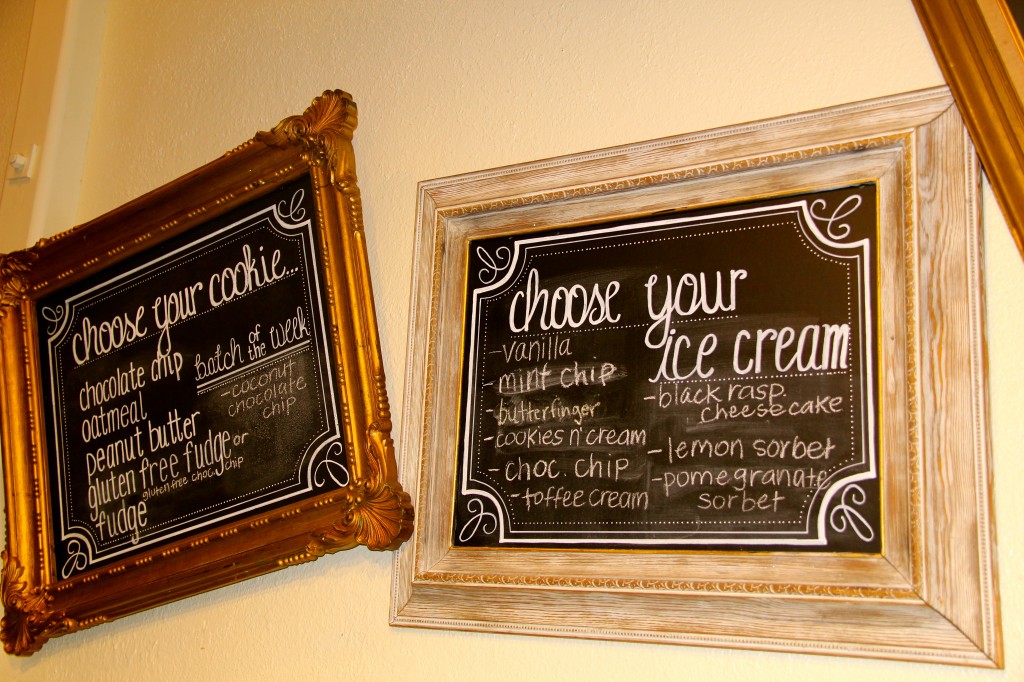 choose your cookie...
chocolate chip
oatmeal
peanut butter
gluten free fudge or
gluten free choc. chip
fudge
batch of the week
-coconut
chocolate
chip
choose your
ice cream
-vanilla
-mint chip
-butterfinger
-cookies n' cream
-choc. chip
-toffee cream
-black rasp.
cheesecake
-lemon sorbet
-pomegranate
sorbet